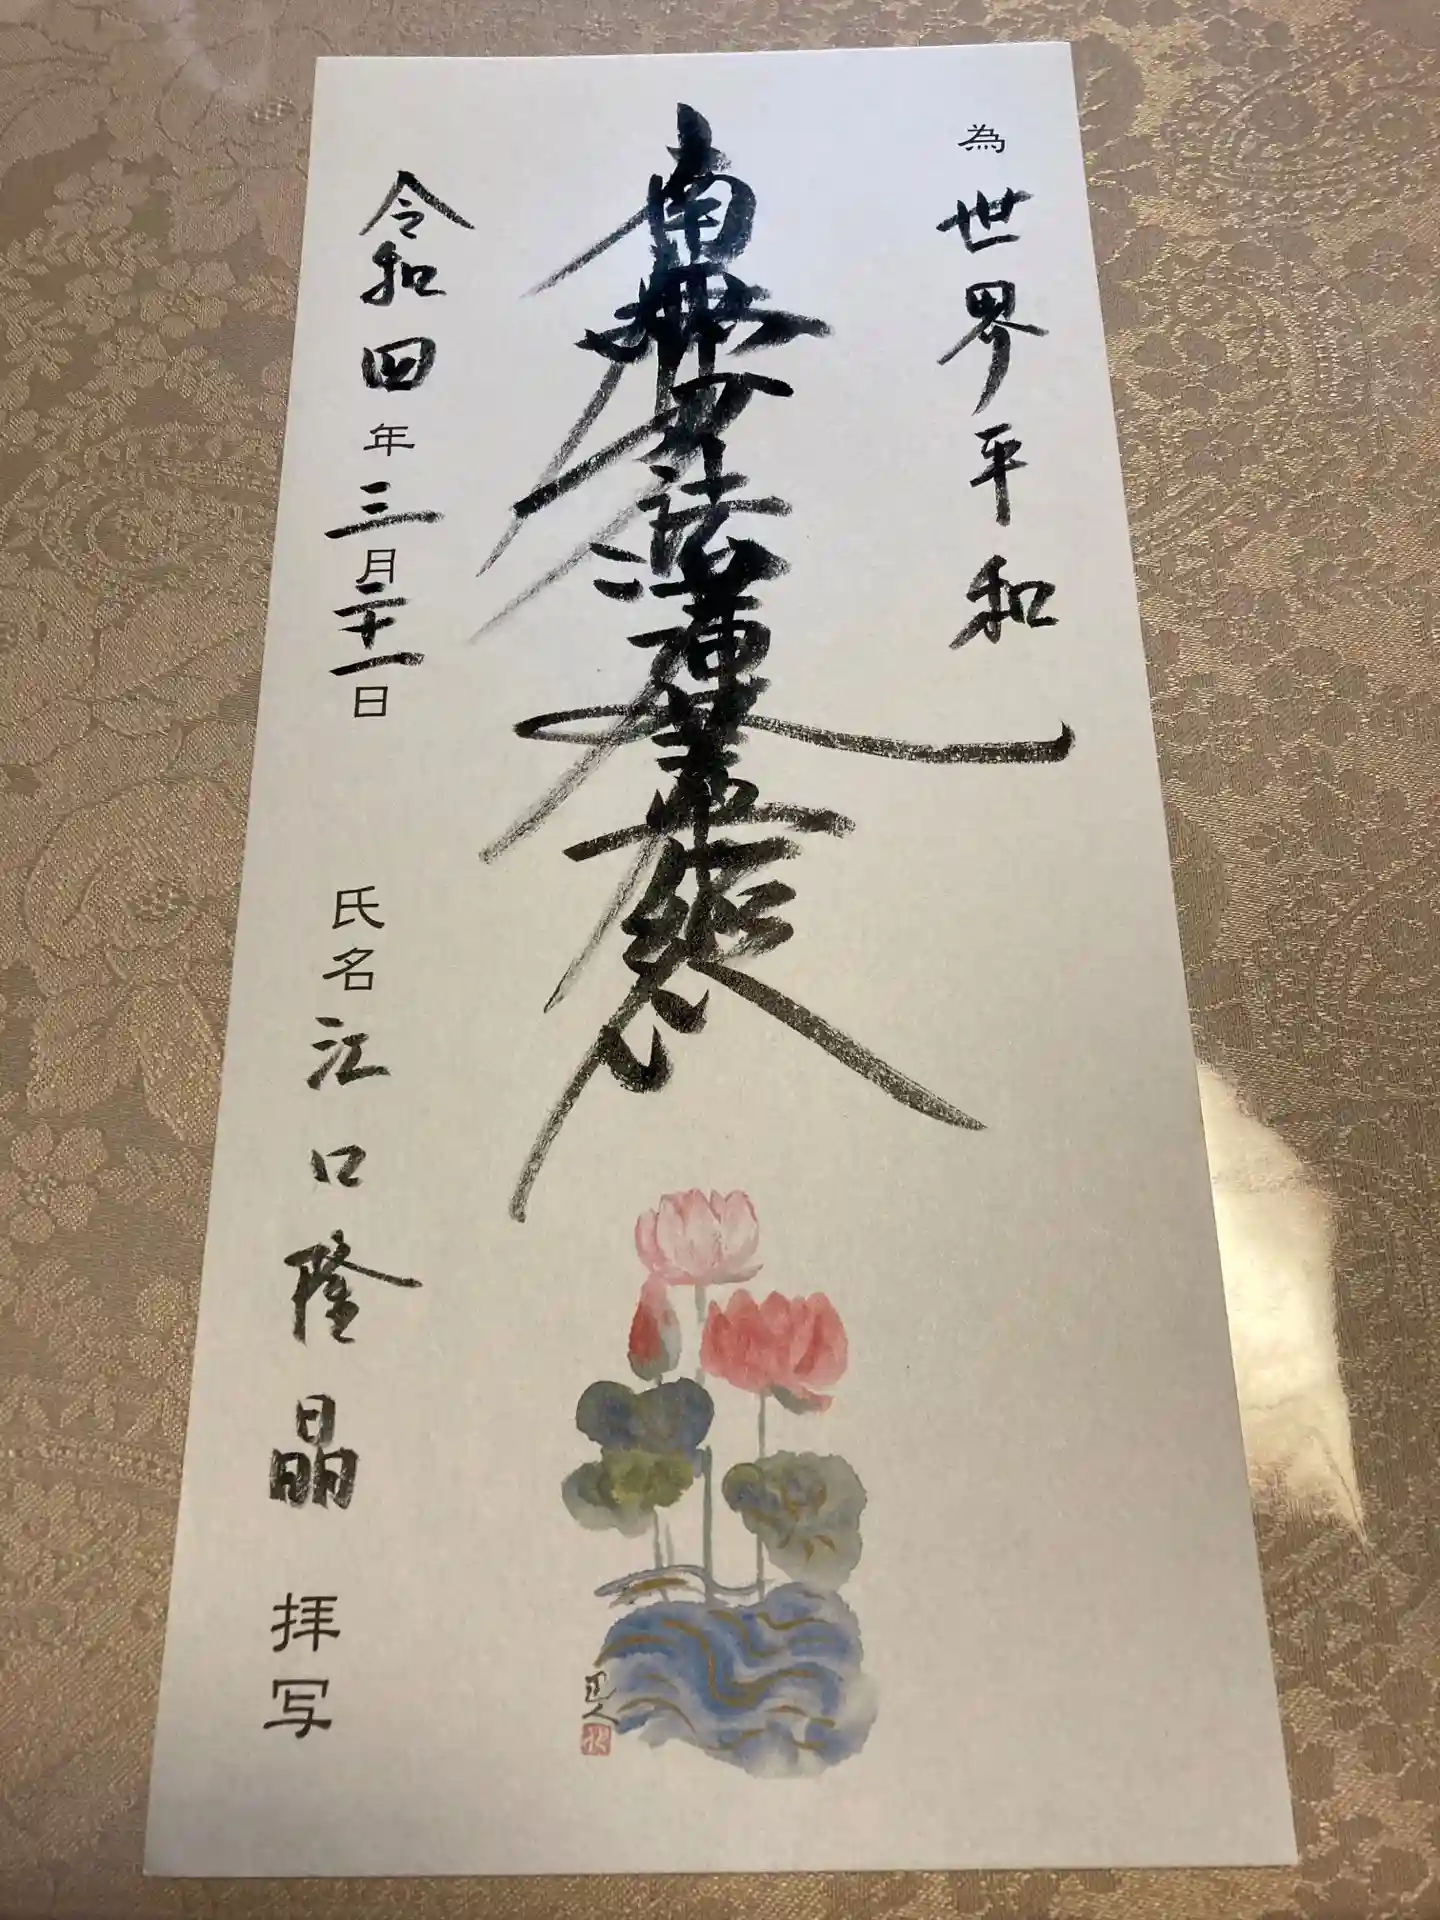 為 世界平和
南無妙法蓮華経
令和四年三月二十一日 氏名 江口隆晶 拝写